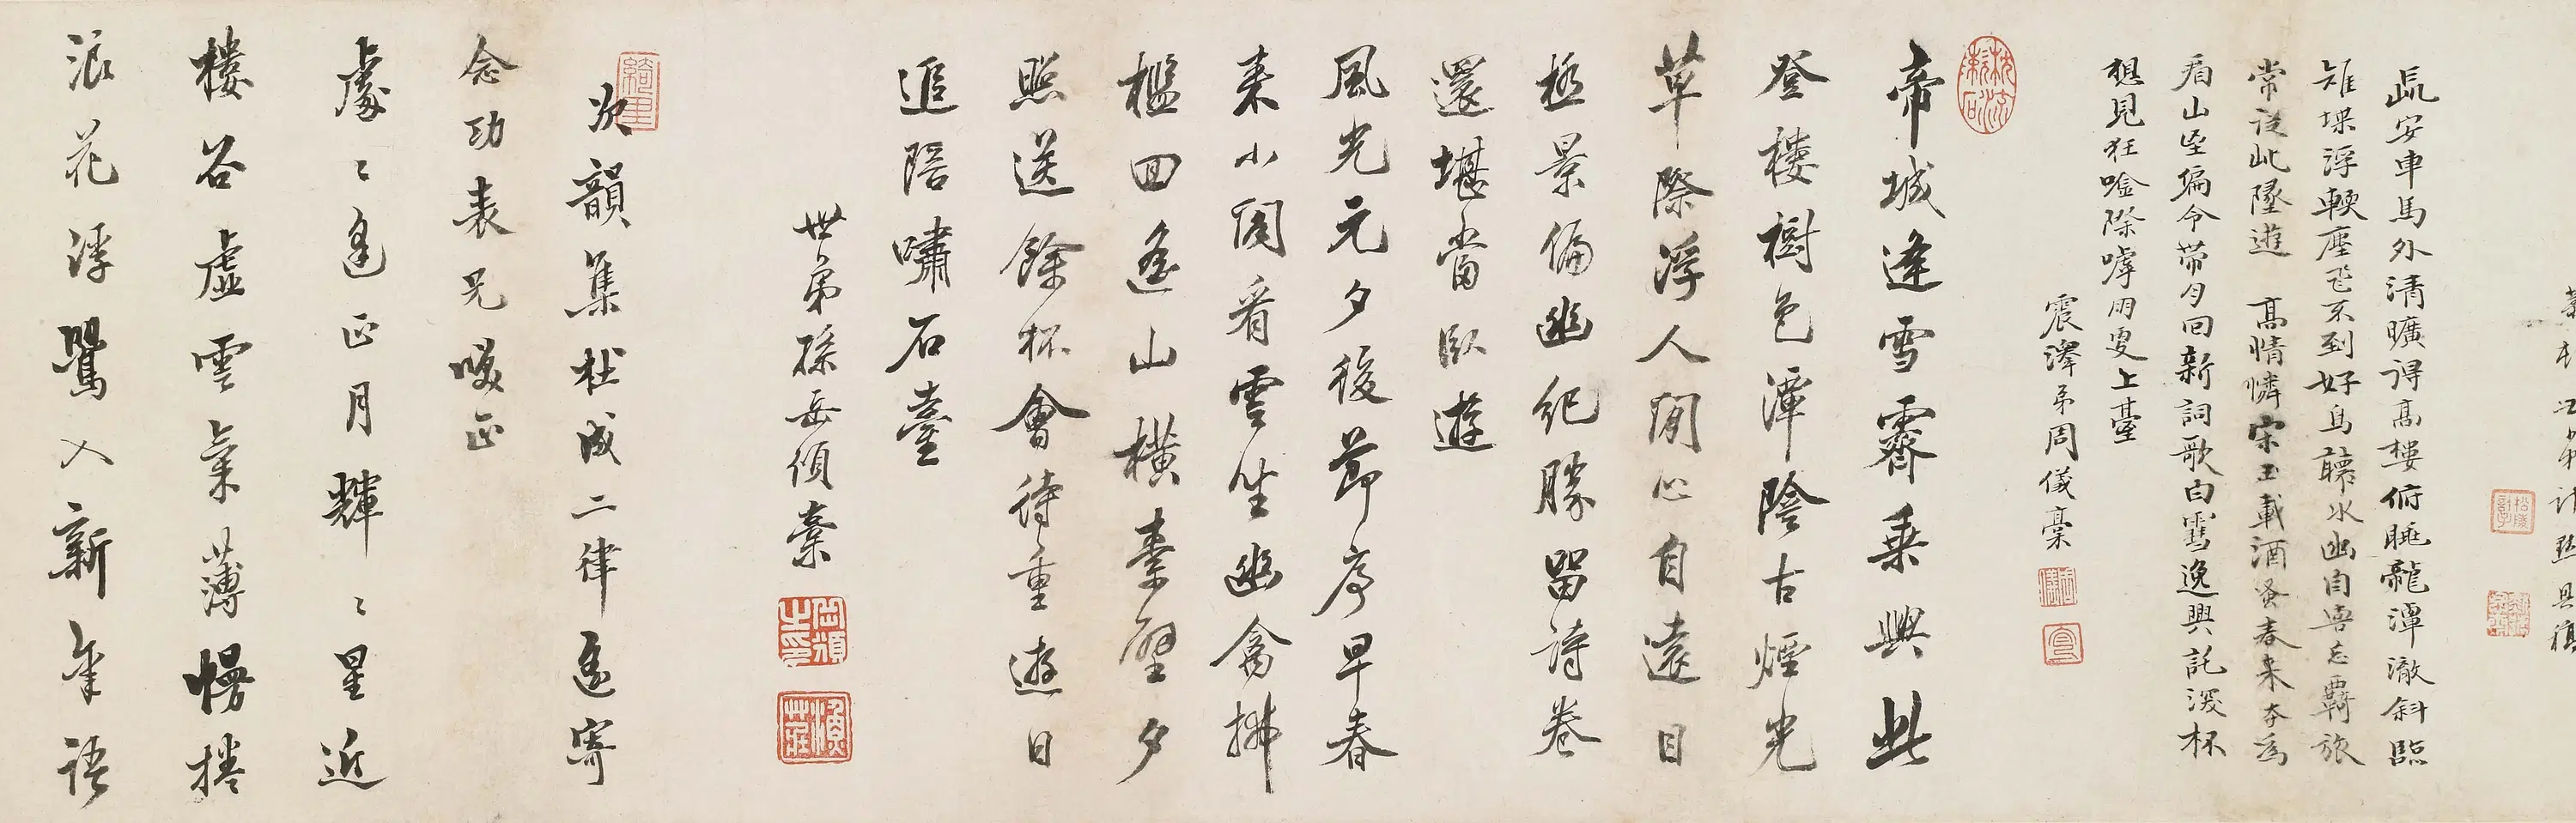 安車馬外清曠得高樓俯眺龍潭澈斜臨
雉堞浮軟塵飛不到好鳥聽水幽自喜忘羈旅
常從此墜遊 高情憐宋玉載酒及春來夸為
看山坐偏令帶月回新詞歌白雪逸興託深杯
想見狂唫際嘑雨更上臺
震澤弟周儀稾
帝城逢雪霽乗興此
登樓樹色潭陰古煙光
草際浮人閒心自遠目
極景偏幽紀勝留詩卷
還堪當臥遊
風光元夕後節序早春
来小閣看雲坐幽禽拂
檻回遙山橫素壁夕
照送餘杯會待重遊日
追陪嘯石臺
世弟孫岳頒稾
次韻集杜成二律遙寄
念功表兄唆正
處〻逢正月輝〻星近
樓谷虛雲氣薄幔捲
浪花浮鸎入新年語